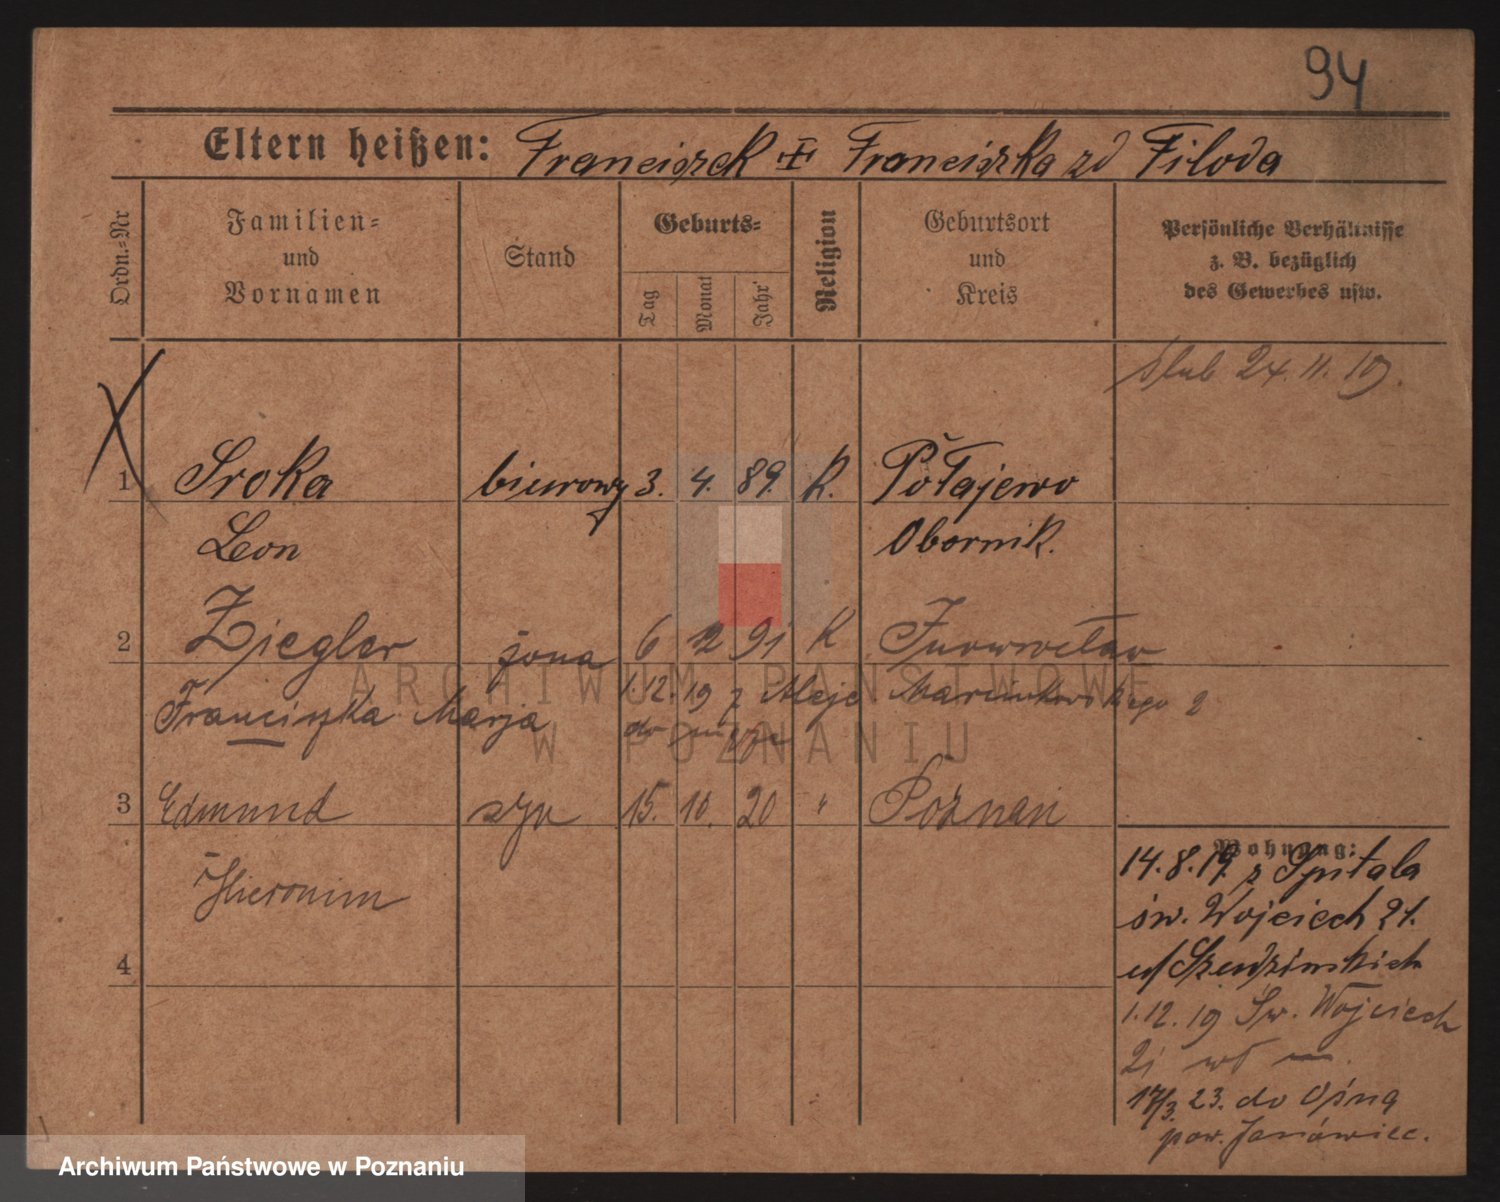 94
Eltern heißen: Franciszek ‡ Franciszka zd Filoda
Ordn.-Nr
Familien- und Vornamen
Stand
Geburts-
Tag
Monat
Jahr
Religion
Geburtsort und Kreis
Persönliche Verhältnisse z. B. bezüglich des Gewerbes usw.
ślub 24.11.19.
1 Sroka biurowy 3. 4. 89. K. Połajewo
Leon Obornik.
2 Ziegler żona 6 12 91 K Inowrocław
Franciszka Marja 1.12.19 z Aleje Marcinkowskiego 2
do męża
3 Edmund syn 15. 10. 20 " Poznań
Hieronim
4
Wohnung:
14.8.19. z Spitala
św. Wojciech 21.
1.12.19 Św. Wojciech
21 wł
17/3. 23. do Ośna
pow. Janówiec.
ARCHIWUM PAŃSTWOWE
W POZNANIU
Archiwum Państwowe w Poznaniu